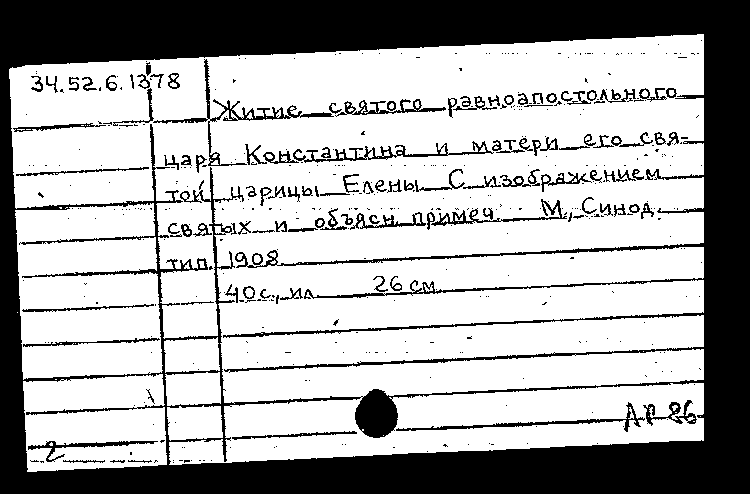 34.52.6.1378
Житие святого равноапостольного
царя Константина и матери его свя-
той царицы Елены С изображением
святых и объясн. примеч. М., Синод.
тип. 1908
40 с., ил. 26 см
АР 86
2